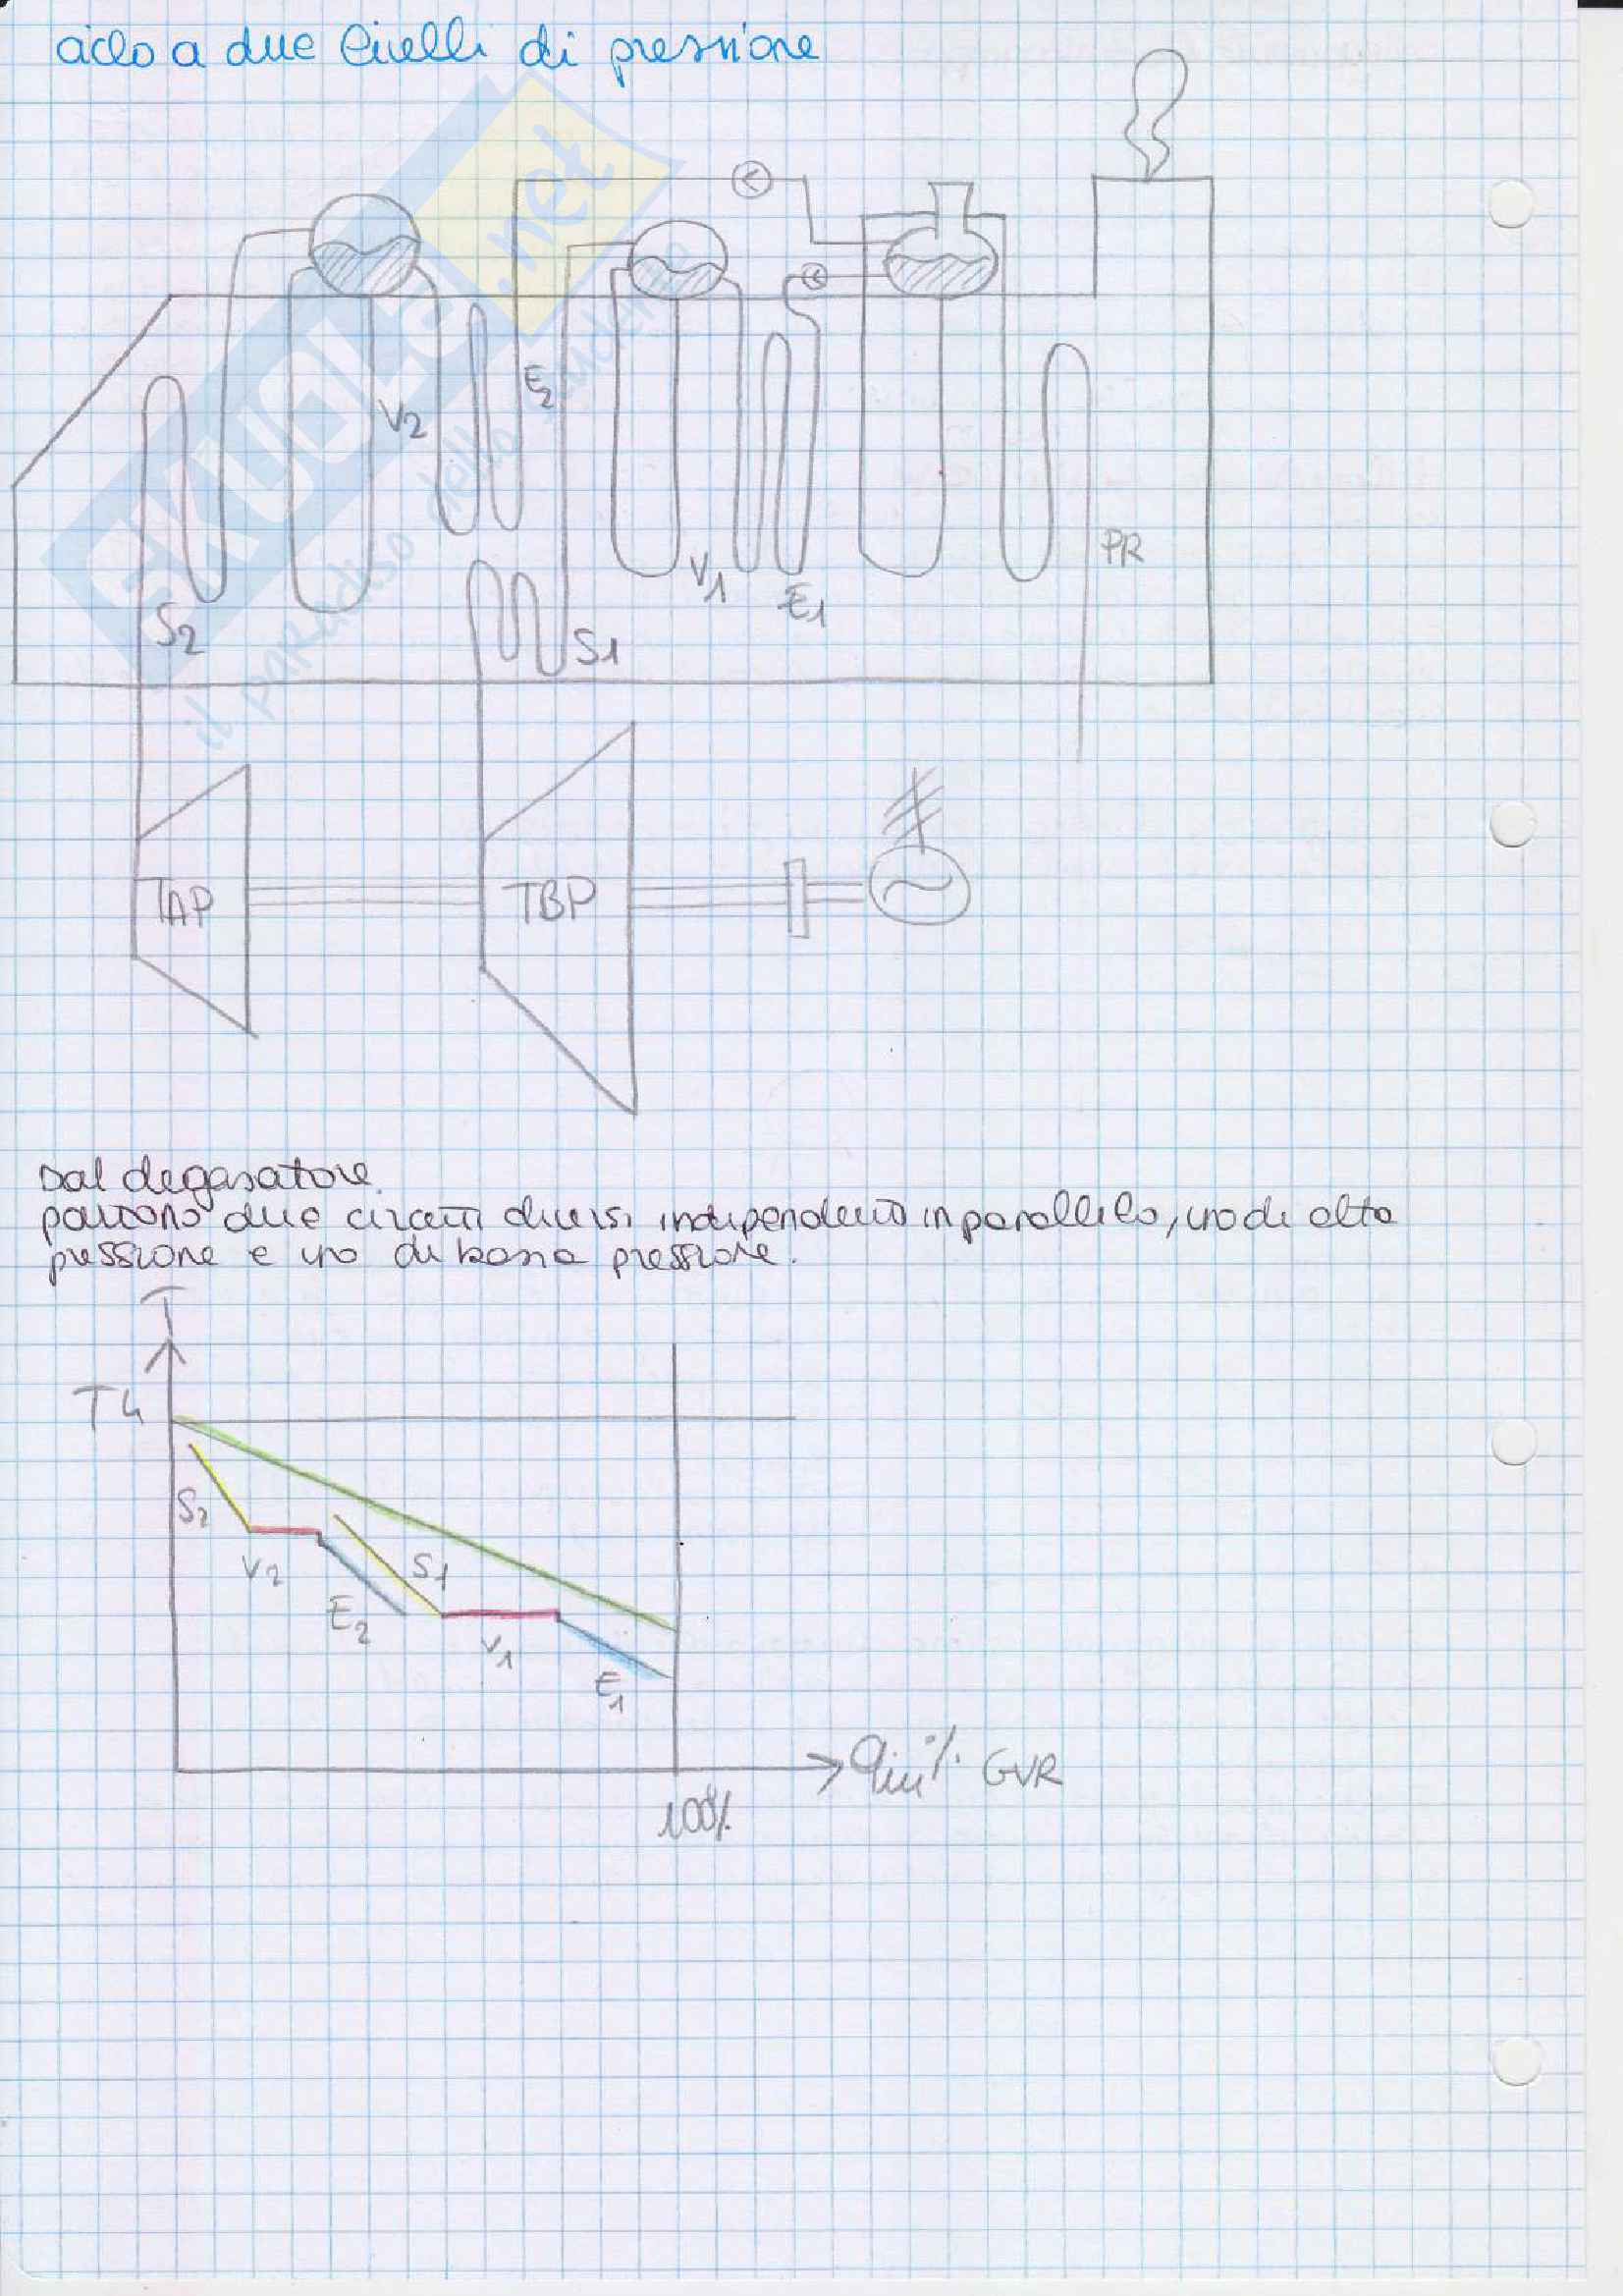 ciclo a due livelli di pressione
SKUOLA.net
il paradiso dello studente
E2
V2
PR
V1
E1
S2
S1
TAP
TBP
Dal degasatore
partono due circuiti diversi indipendenti in parallelo, uno di alta
pressione e uno di bassa pressione.
T
T4
S2
V2
S1
E2
V1
E1
% GVR
100%